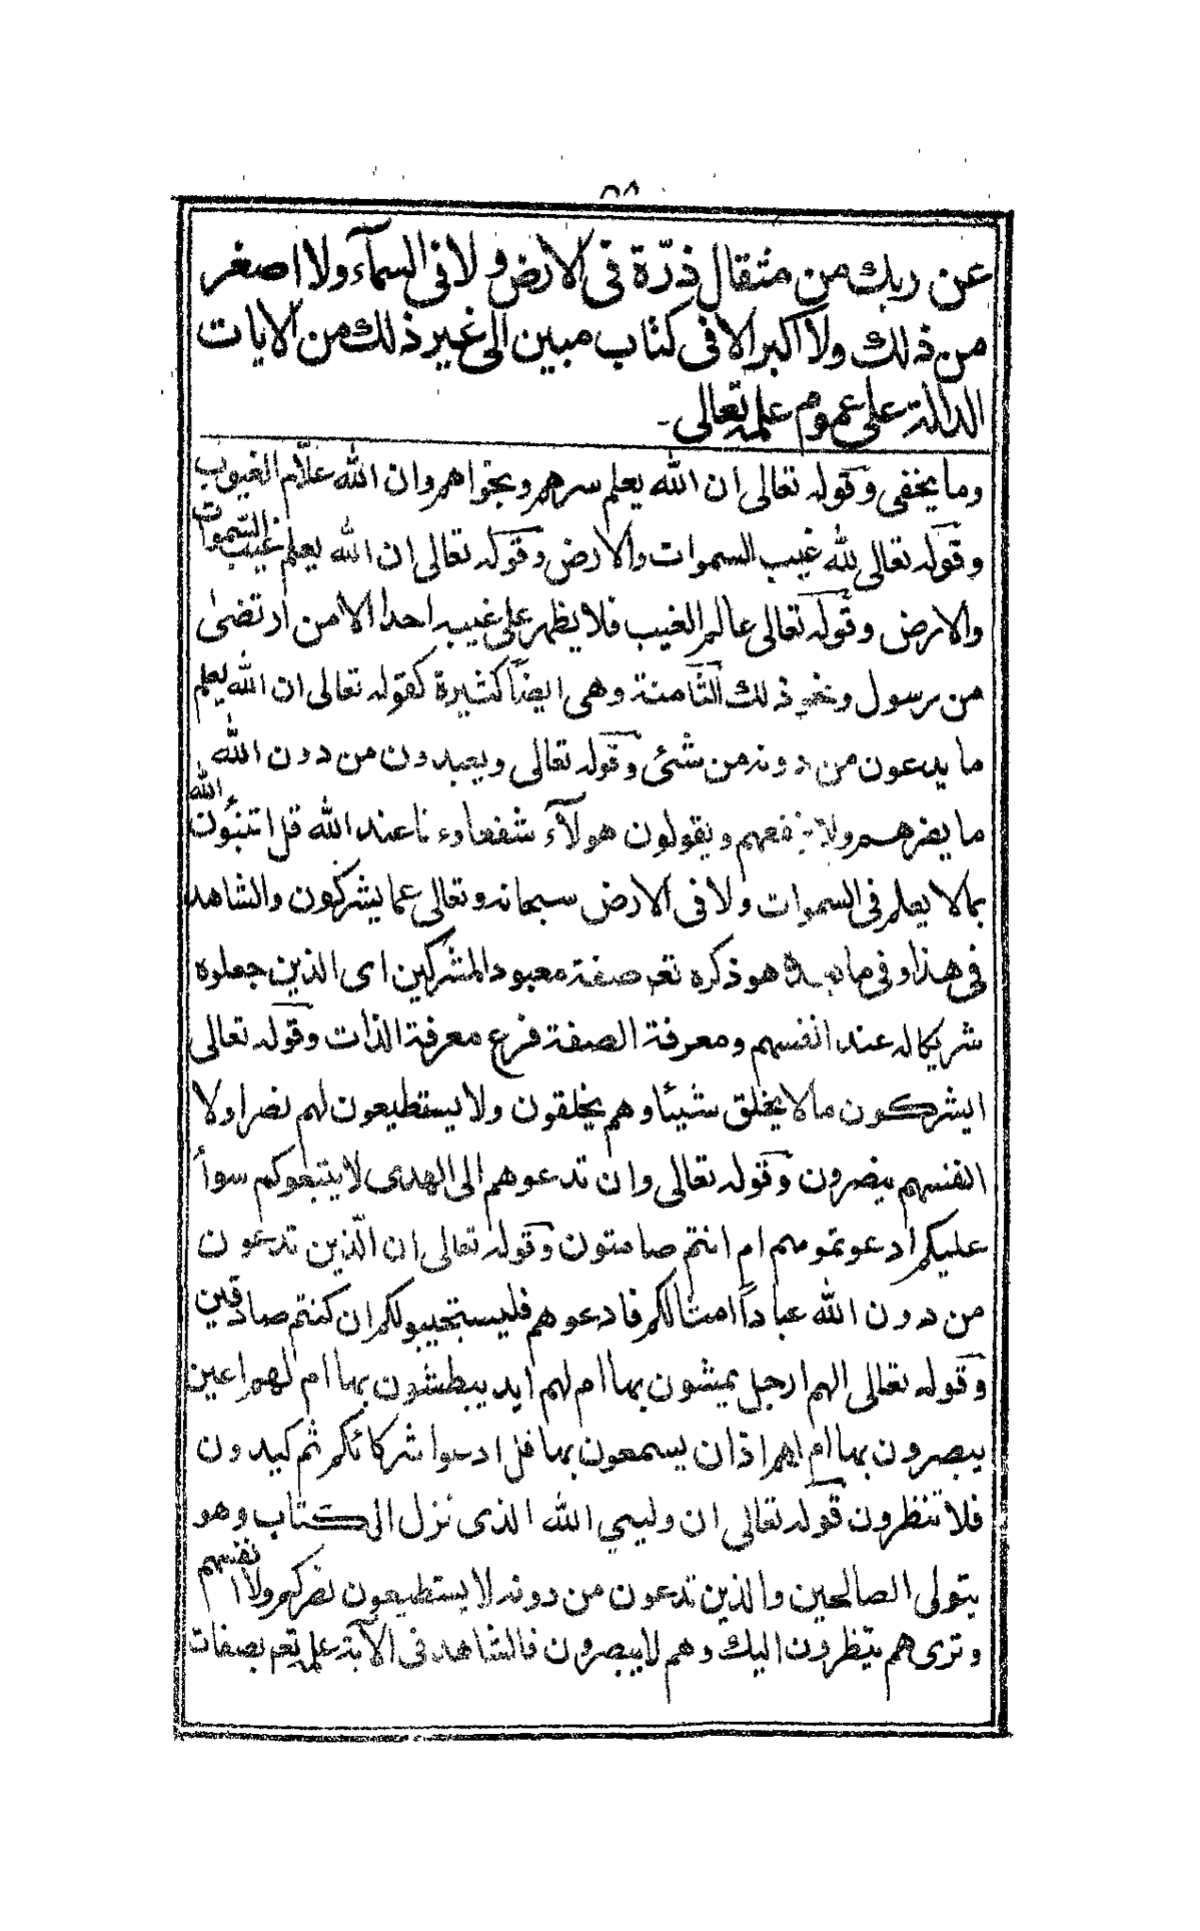 ٣٨
عن ربك من مثقال ذرّة فى الارض ولا فى السمآء ولا اصغر
من ذلك ولا اكبر الا فى كتاب مبين الى غير ذلك من الايات
الدالة على عموم علمه تعالى۔
وما يخفى وقوله تعالى ان الله يعلم سرهم ونجواهم وان الله علّام الغيوب
وقوله تعالى لله غيب السموات والارض وقوله تعالى ان الله يعلم غيب السّموات
والارض وقوله تعالى عالم الغيب فلا يظهر على غيبه احدا الا من ارتضىٰ
من رسول ونحو ذلك الثامنة وهى ايضًا كثيرة كقوله تعالى ان الله يعلم
ما يدعون من دونه من شئى وقوله تعالى ويعبدون من دون الله
ما يضرهم ولا ينفعهم ويقولون هولآء شفعاوءنا عند الله قل اتنبئون الله
بما لا يعلم فى السموات ولا فى الارض سبحانه وتعالى عما يشركون والشاهد
فى هذا وفى ما بعده هو ذكره تعم صفة معبود المشركين اى الذين جعلوه
شريكا له عند انفسهم ومعرفة الصفة فرع معرفة الذات وقوله تعالى
ايشركون مالا يخلق شيئا وهم يخلقون ولا يستطيعون لهم نصرا ولا
انفسهم ينصرون وقوله تعالى وان تدعوهم الى الهدى لا يتبعوكم سوأ
عليكم ادعوتموهم ام انتم صامتون وقوله تعالى ان الّذين تدعون
من دون الله عباداً امثالكم فادعوهم فليستجيبو لكم ان كنتم صادقين
وقوله تعالى الهم ارجل يمشون بها ام لهم ايد يبطشون بها ام لهم اعين
يبصرون بها ام لهم اذان يسمعون بها قل ادعوا شركائكم ثم كيدون
فلا تنظرون قوله تعالى ان وليي الله الذى نزل الكتاب وهو
يتولى الصالحين والذين تدعون من دونه لا يستطيعون نصركم ولا انفسهم
وترى هم ينظرون اليك وهم لا يبصرون فالشاهد فى الآية علمه تعم بصفات